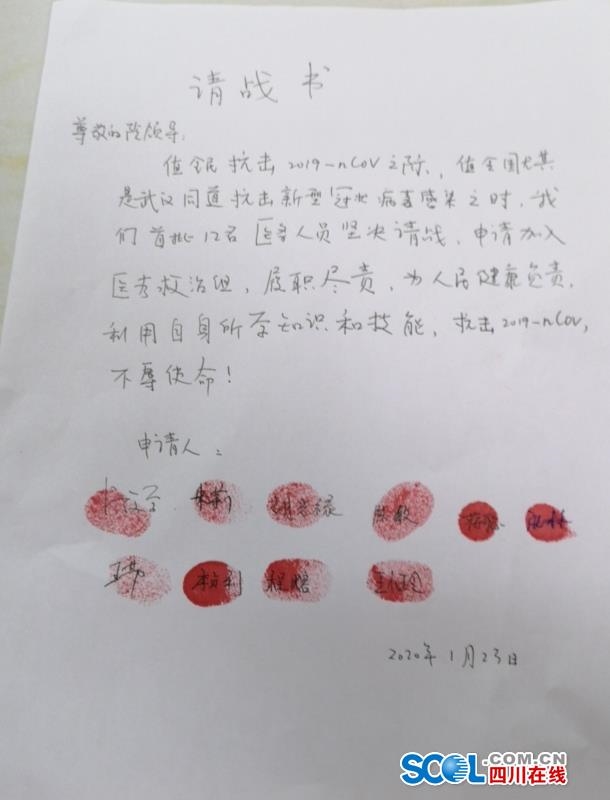 请战书
尊敬的院领导:
值全民抗击2019-nCOV之际,值全国尤其
是武汉同道抗击新型冠状病毒感染之时,我
们首批12名医务人员坚决请战,申请加入
医疗救治组,履职尽责,为人民健康负责,
利用自身所学知识和技能,抗击2019-nCOV,
不辱使命!
申请人:
程鹏
2020年1月23日
SCOL.COM.CN
四川在线